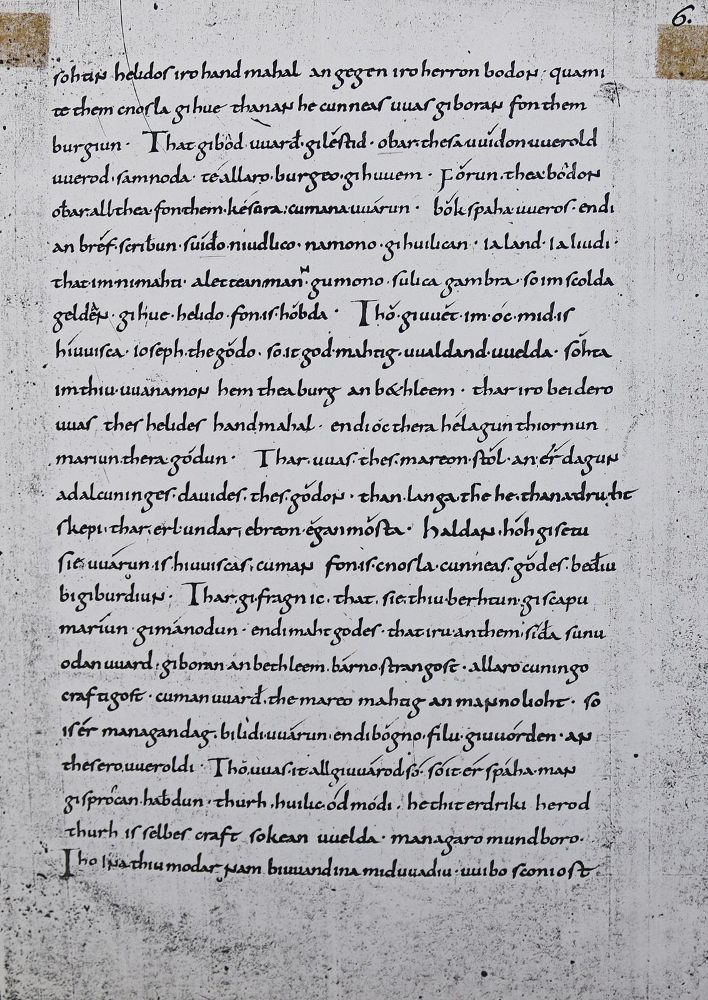 6.
sohtun helidos iro hand mahal angegen iro herron bodon · quami
te them cnosla gihue thanan he cunneas uuas giboran fon them
burgiun · That gibod uuarđ gilestid · obar thesa uuidon uuerold
uuerod samnoda te allaro burgeo gihuuem · Forun thea bodon
obar all thea fon them kesura cumana uuarun · bok spaha uueros · endi
an bref scribun suiđo niudlico namono gihuilican · ia land ia liudi ·
that im ni mahti alettean man gumono sulica gambra so im scolda
gelden gihue helido fon is hobda · Tho giuuet im oc mid is
hiuuisca ioseph the godo so it god mahtig uualdand uuelda · sohta
im thiu uuanamon hem thea burg an bethleem · thar iro beidero
uuas thes helides handmahal · endi oc thera helagun thiornun
mariun thera godun · Thar uuas thes mareon stol an er dagun
adalcuninges dauides thes godon · than langa the he thana druht
skepi thar erl undar ebreon egan mosta · haldan hoh gisetu
sie uuarun is hiuuiscas cuman fon is cnosla cunneas godes bediu
bi giburdiun · Thar gifragn ic that sie thiu berhtun giscapu
mariun gimanodun · endi maht godes · that iru an them siđa sunu
odan uuard giboran an bethleem barno strangost · allaro cuningo
craftigost · cuman uuarđ the mareo mahtig an manno lioht · so
is er managan dag biliđi uuarun endi bogno filu giuuorđen · an
thesero uueroldi · Tho uuas it all giuuarod so so it er spaha man
gisprocan habdun · thurh huilic od modi he thit erdriki herod
thurh is selbes craft sokean uuelda · managaro mundboro ·
Tho ina thiu modar nam biuuand ina mid uuadiu · uuibo sconiost